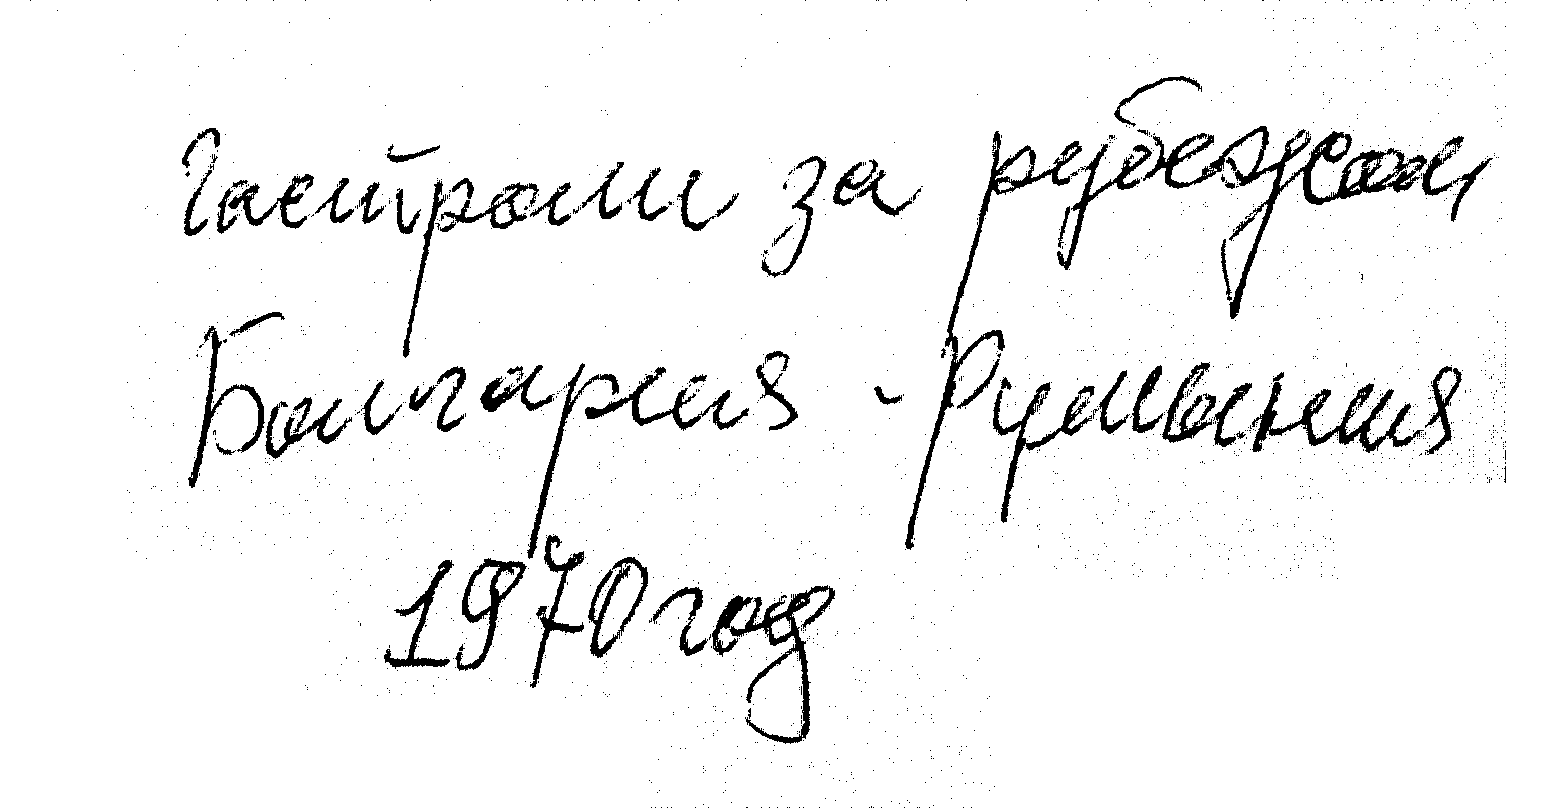 Гастроли за рубежом
Болгария - Румыния
1970 год